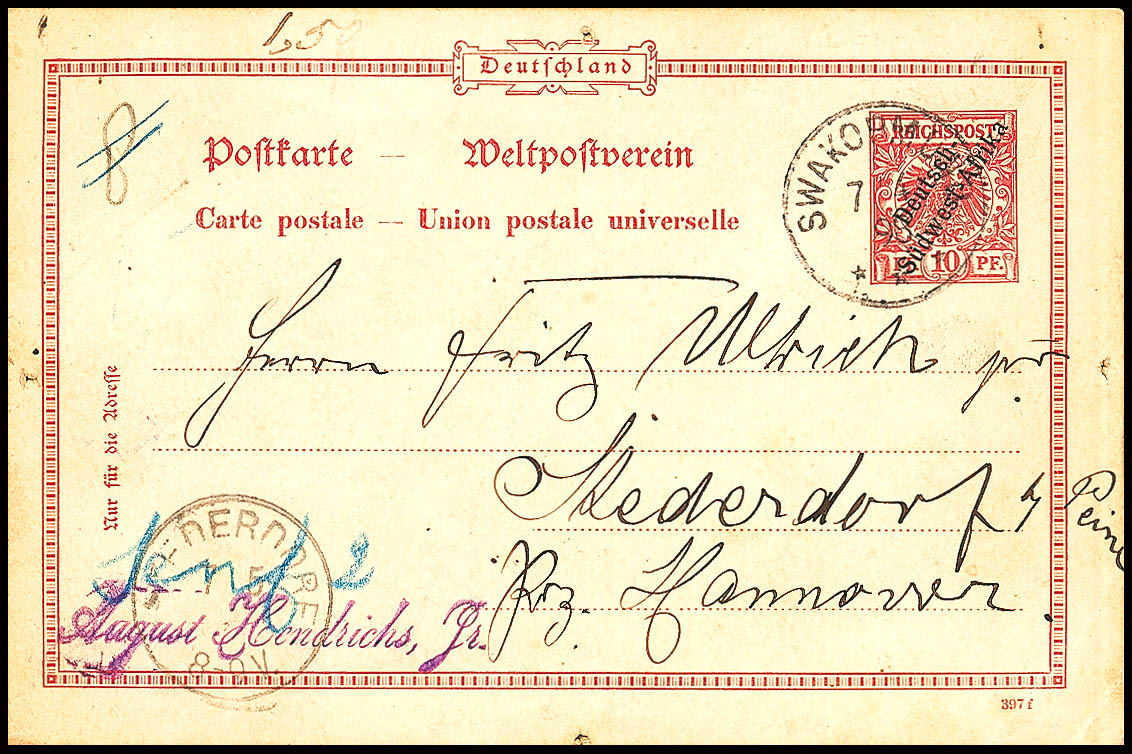 1,50
Deutschland
8
Postkarte — Weltpostverein
Carte postale — Union postale universelle
SWAKOPM
7
REICHSPOST
Deutsch-
Südwest-Afrika
10 PF.
Herrn Fritz Ullrich
Stederdorf
Peine
Prz. Hannover.
Nur für die Adresse
DERDORF
5
8-9V.
August Hendrichs, Jr.
397f